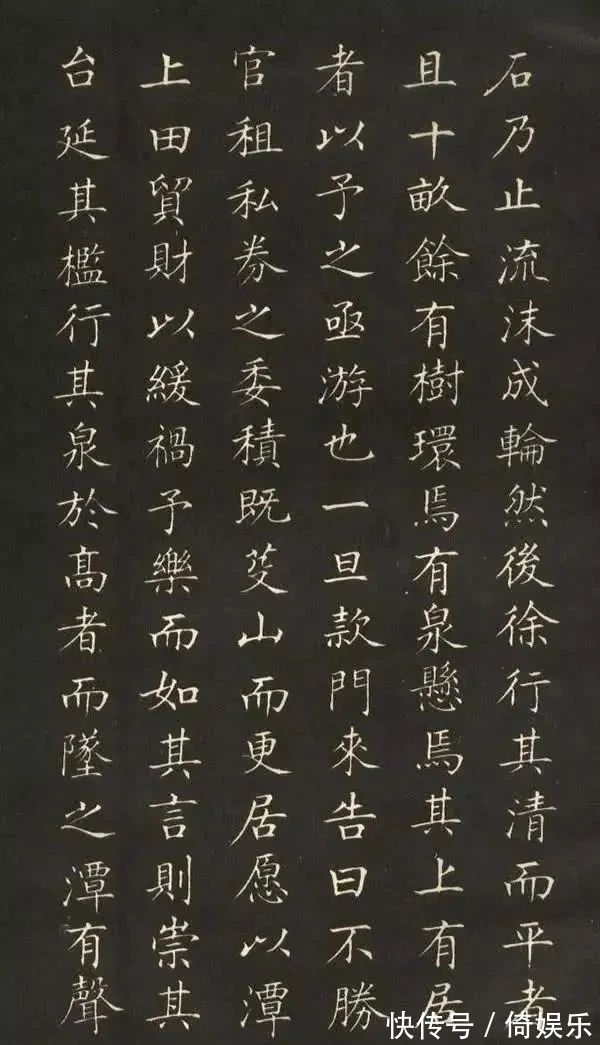 石乃止流沫成輪然後徐行其清而平者
且十畝餘有樹環焉有泉懸焉其上有居
者以予之亟游也一旦款門來告曰不勝
官租私券之委積既芟山而更居愿以潭
上田貿財以緩禍予樂而如其言則崇其
台延其檻行其泉於髙者而墜之潭有聲
快传号 / 倚娱乐